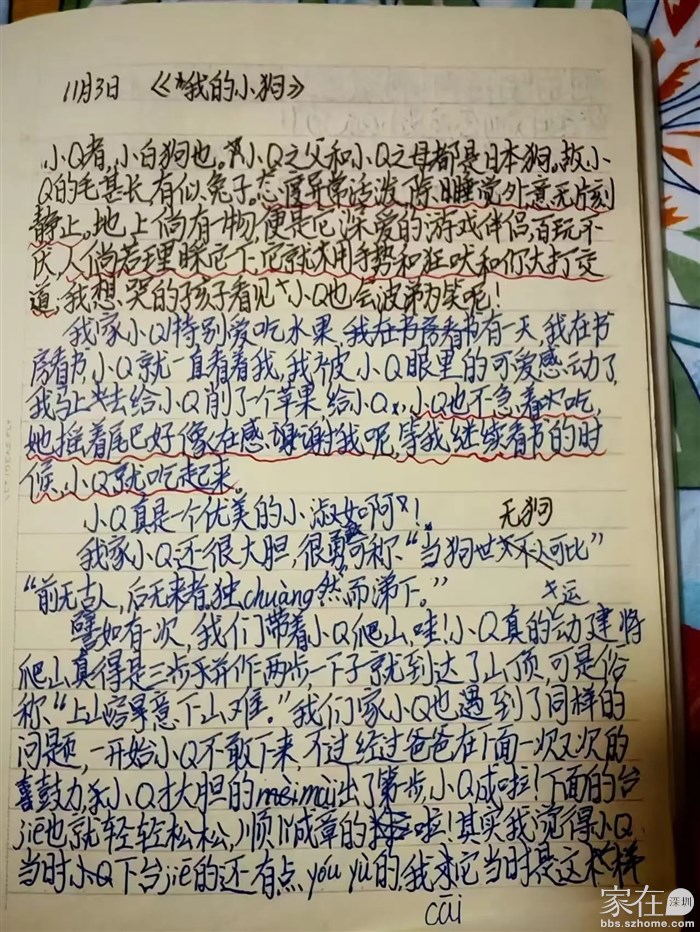 11月3日 《我的小狗》
小Q者,小白狗也。小Q之父和小Q之母都是日本狗。故小
Q的毛甚长,有似兔子。态度异常活泼,除日睡觉外意无片刻
静止。地上倘有一物,便是它深爱的游戏伴侣,百玩不
厌,人倘若理睬它一下,它就术用手势和狂吠和你大打交
道,我想,哭的孩子看见小Q也会波涕为笑呢!
我家小Q特别爱吃水果,我在书房看书有一天,我在书
房看书,小Q就一直看着我,我被小Q眼里的可爱感动了,
我马上去给小Q削了一个苹果给小Q,小Q也不急着吃,
她摇着尾巴好像在感谢我呢,等我继续看书的时
候,小Q就吃起来。
小Q真是一个优美的小淑女啊!
无狗
我家小Q还很大胆,很勇可称“当狗世不可比”
“前无古人,后无来者。独chuàng然而涕下。”
运
譬如有一次,我们带着小Q爬山,哇!小Q真的动建将
爬山真得是三步并作两步,一下子就到达了山顶,可是俗
称“上山容意下山难。”我们家小Q也遇到了同样的
问题,一开始小Q不敢下来,不过经过爸爸在下面一次又次的
喜鼓力,小Q才大胆的mài出了第步,小Q成啦!下面的台
jiē也就轻轻松松,顺以成章的啦!其实我觉得小Q
当时小Q下台jiē的还有点yóu yù的,我它当时是这样
cāi
家在深圳
bbs.szhome.com